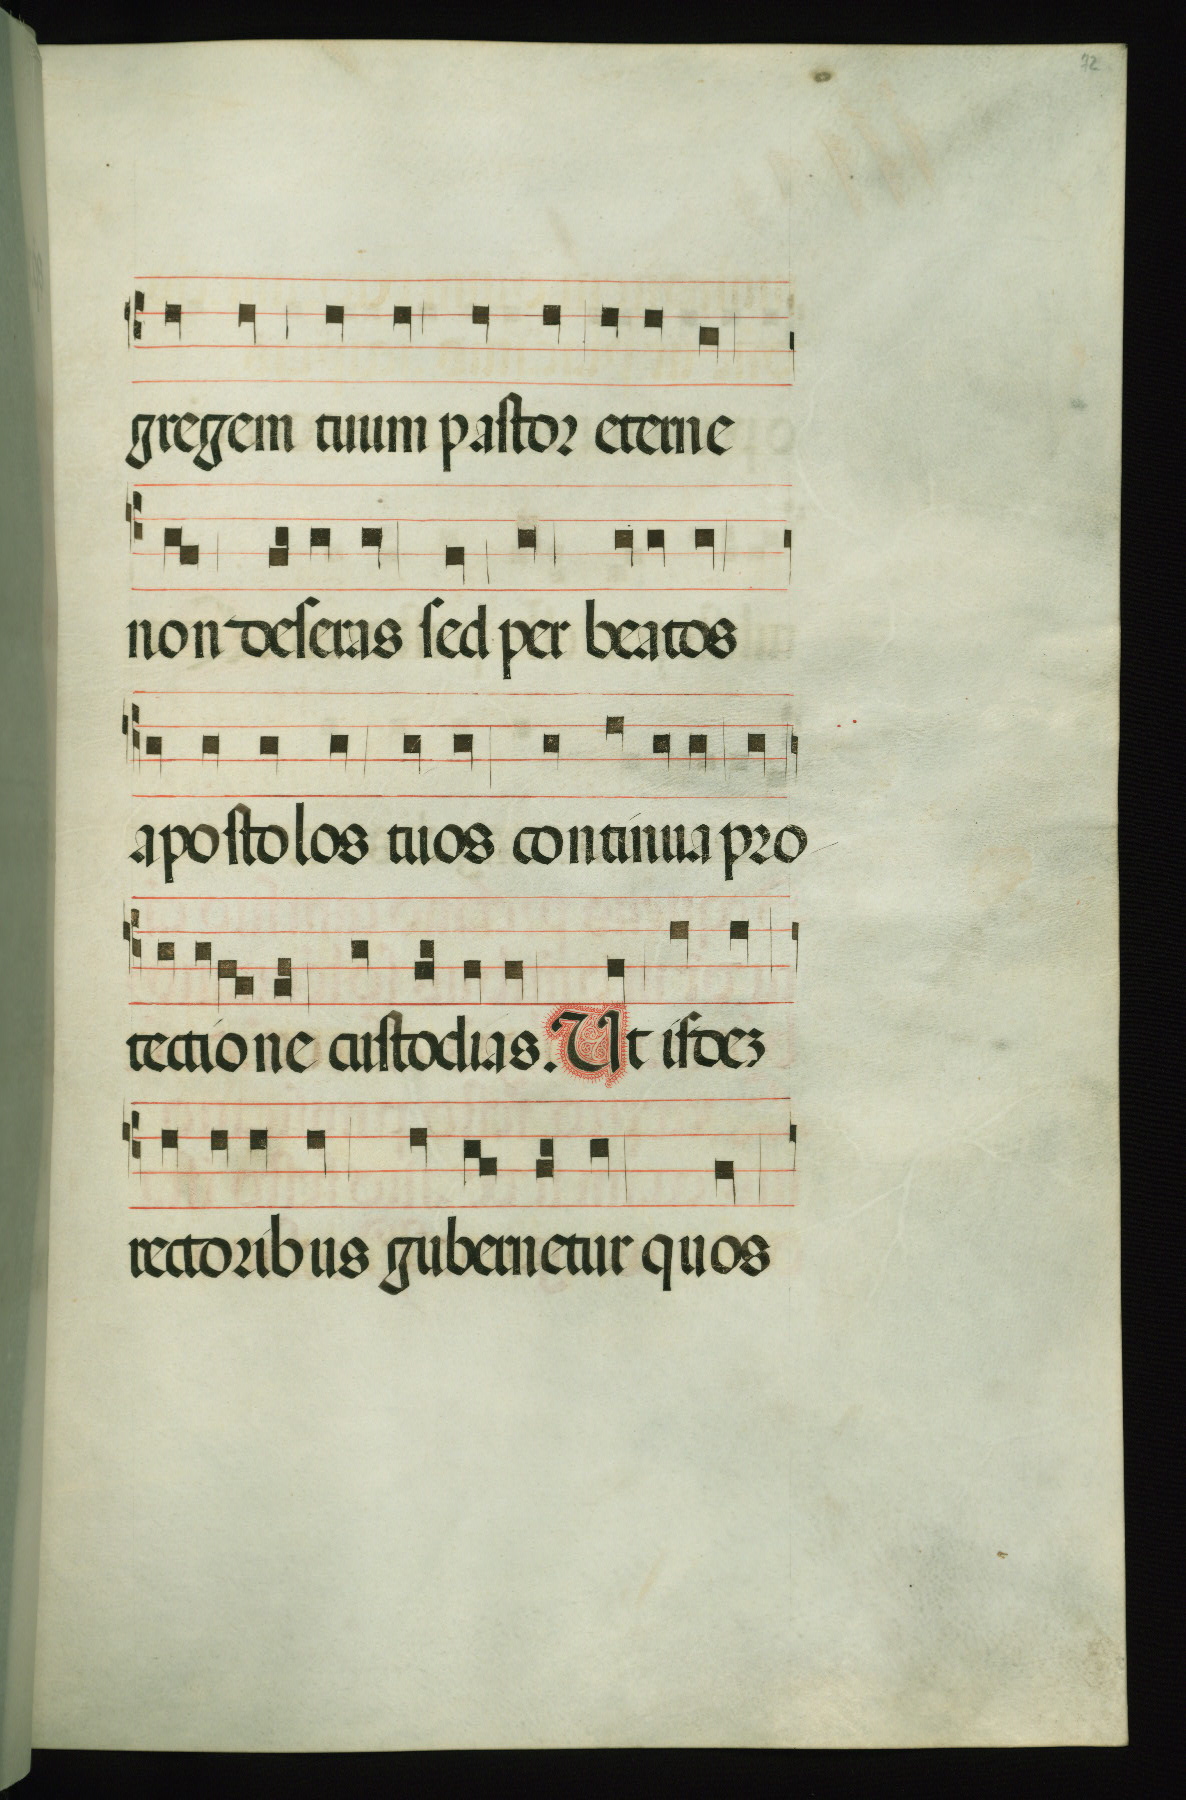 72
gregem tuum pastor eterne
non deseras sed per beatos
apostolos tuos continua pro
tectione custodias. Ut isdez
rectoribus gubernetur quos